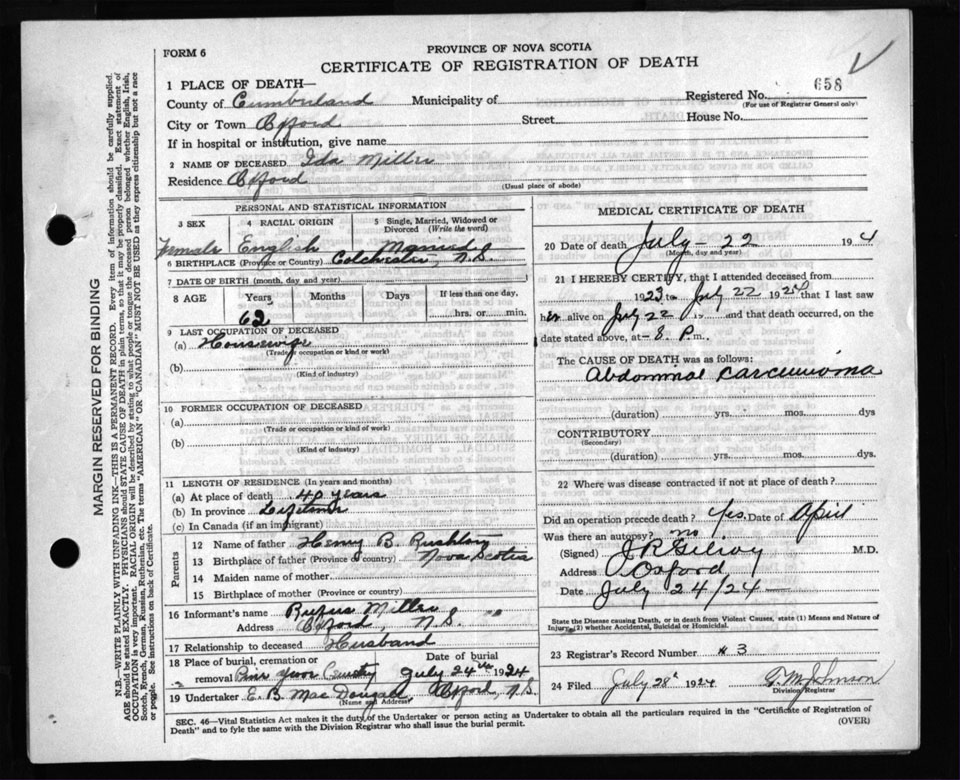 FORM 6
PROVINCE OF NOVA SCOTIA
CERTIFICATE OF REGISTRATION OF DEATH
1 PLACE OF DEATH—
658
Registered No.
(For use of Registrar General only)
County of Cumberland Municipality of
City or Town Oxford Street House No.
If in hospital or institution, give name
2 NAME OF DECEASED Ida Miller
Residence Oxford
(Usual place of abode)
PERSONAL AND STATISTICAL INFORMATION
3 SEX 4 RACIAL ORIGIN 5 Single, Married, Widowed or Divorced (Write the word)
Female English Married
6 BIRTHPLACE (Province or Country) Colchester, N.S.
7 DATE OF BIRTH (month, day and year)
8 AGE Years Months Days If less than one day,
62 hrs. or min.
9 LAST OCCUPATION OF DECEASED
(a) Housewife
(Trade or occupation or kind or work)
(b)
(Kind of industry)
10 FORMER OCCUPATION OF DECEASED
(a)
(Trade or occupation or kind of work)
(b)
(Kind of industry)
11 LENGTH OF RESIDENCE (In years and months)
(a) At place of death 40 years
(b) In province Lifetime
(c) In Canada (if an immigrant)
Parents
12 Name of father Henry B.
13 Birthplace of father (Province or country) Nova Scotia
14 Maiden name of mother
15 Birthplace of mother (Province or country)
16 Informant's name Rufus Miller
Address Oxford, N.S.
17 Relationship to deceased Husband
18 Place of burial, cremation or removal Date of burial
Cemetery July 24th 1924
19 Undertaker E. B. MacDougall Oxford, N.S.
(Name and Address)
MEDICAL CERTIFICATE OF DEATH
20 Date of death July - 22 19 4
(Month, day and year)
21 I HEREBY CERTIFY, that I attended deceased from
1923 to July 22 1924 that I last saw
her alive on July 22 19 and that death occurred, on
date stated above, at - 8 P. m.
The CAUSE OF DEATH was as follows:
Abdominal Carcinoma
(duration) yrs. mos. dys
CONTRIBUTORY
(Secondary)
(duration) yrs. mos. dys.
22 Where was disease contracted if not at place of death?
Did an operation precede death? Yes. Date of April
Was there an autopsy? no
(Signed) J R Gilroy M.D.
Address Oxford
Date July 24/24
State the Disease causing Death, or in death from Violent Causes, state (1) Means and Nature of
Injury, (2) whether Accidental, Suicidal or Homicidal.
23 Registrar's Record Number # 3
24 Filed July 28 1924
Division Registrar
SEC. 46—Vital Statistics Act makes it the duty of the Undertaker or person acting as Undertaker to obtain all the particulars required in the "Certificate of Registration of
Death" and to fyle the same with the Division Registrar who shall issue the burial permit.
(OVER)
MARGIN RESERVED FOR BINDING
N.B.—WRITE PLAINLY WITH UNFADING INK—THIS IS A PERMANENT RECORD. Every item of information should be carefully supplied.
AGE should be stated EXACTLY. PHYSICIANS should STATE CAUSE OF DEATH in plain terms, so that it may be properly classified. Exact statement of
OCCUPATION is very important. RACIAL ORIGIN will be described by stating to what people or tongue the deceased person belonged whether English, Irish,
Scotch, French, German, Russian, Ruthenian, etc. The terms "AMERICAN" OR "CANADIAN" MUST NOT BE USED as they express citizenship but not a race
or people. See instructions on back of Certificate.